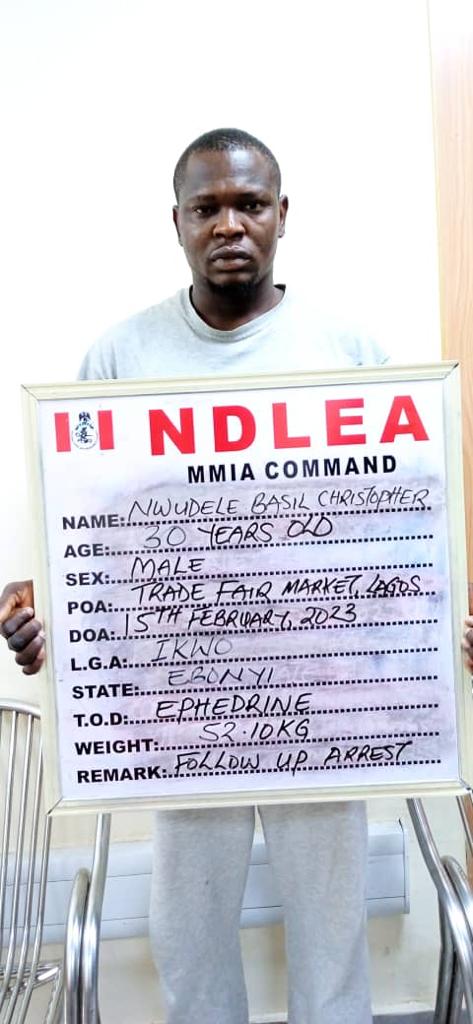 NDLEA
MMIA COMMAND
NAME: NWUDELE BASIL CHRISTOPHER
AGE: 30 YEARS OLD
SEX: MALE
POA: TRADE FAIR MARKET, LAGOS
DOA: 15TH FEBRUARY, 2023
L.G.A: IKWO
STATE: EBONYI
T.O.D: EPHEDRINE
WEIGHT: 52.10KG
REMARK: FOLLOW UP ARREST